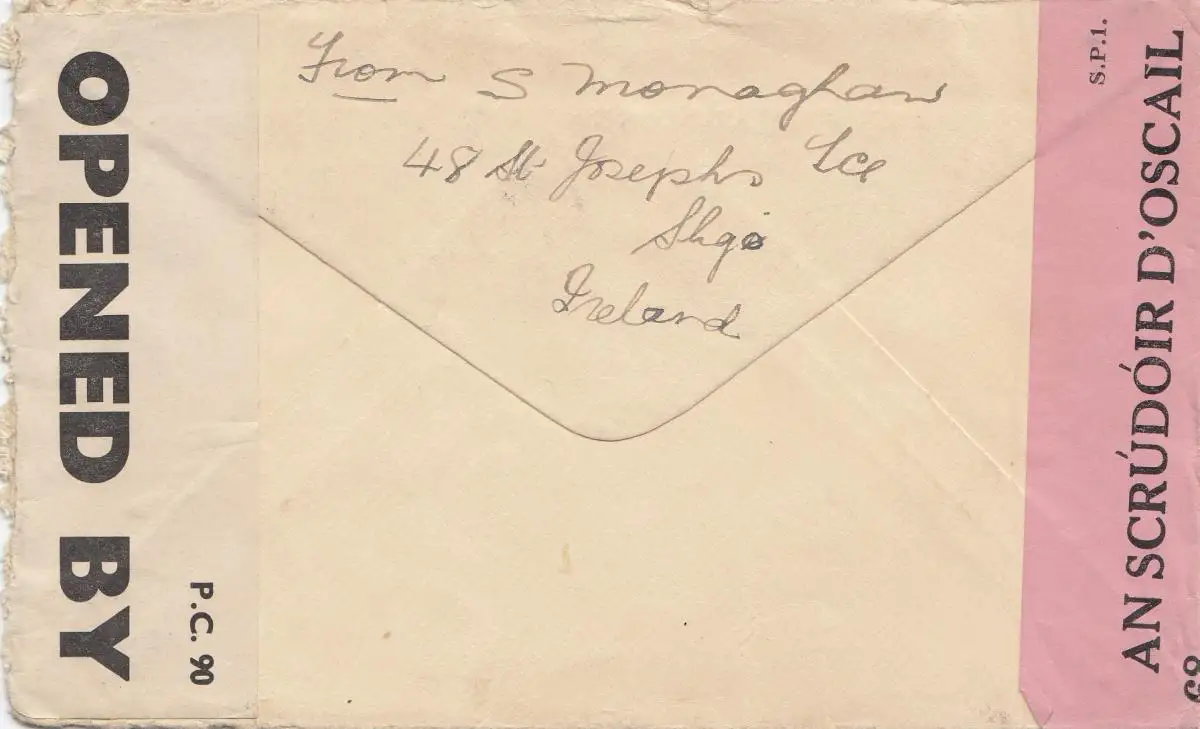 OPENED BY
P.C. 90
From S Monaghan
48 St Josephs Tce
Sligo
Ireland
S.P.1.
AN SCRÚDÓIR D'OSCAIL